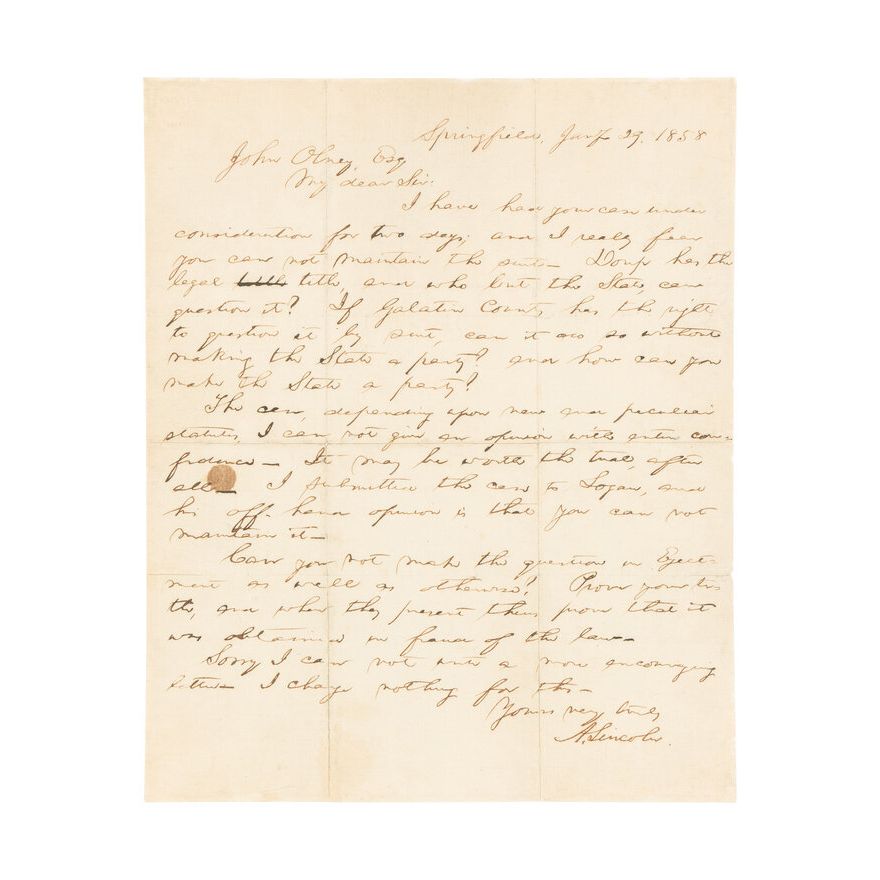 Springfield, Jany 29. 1858
John Olney, Esq
My dear Sir:
I have had your case under
consideration for two days; and I really fear
you can not maintain the suit— has the
legal title, and who but the State, can
question it? If Galatin County has the right
to question it by suit, can it do so without
making the State a party? and how can you
make the State a party?
The case, depending upon new and peculiar
statutes, I can not give an opinion with entire con=
fidence— It may be worth the trial, after
all— I submitted the case to Logan, and
his off-hand opinion is that you can not
maintain it—
Can you not make the question in Eject-
ment as well as otherwise? Prove your ti=
tle, and when they present theirs prove that it
was obtained in fraud of the law—
Sorry I can not write a more encouraging
letter— I charge nothing for this—
Yours very truly
A. Lincoln.